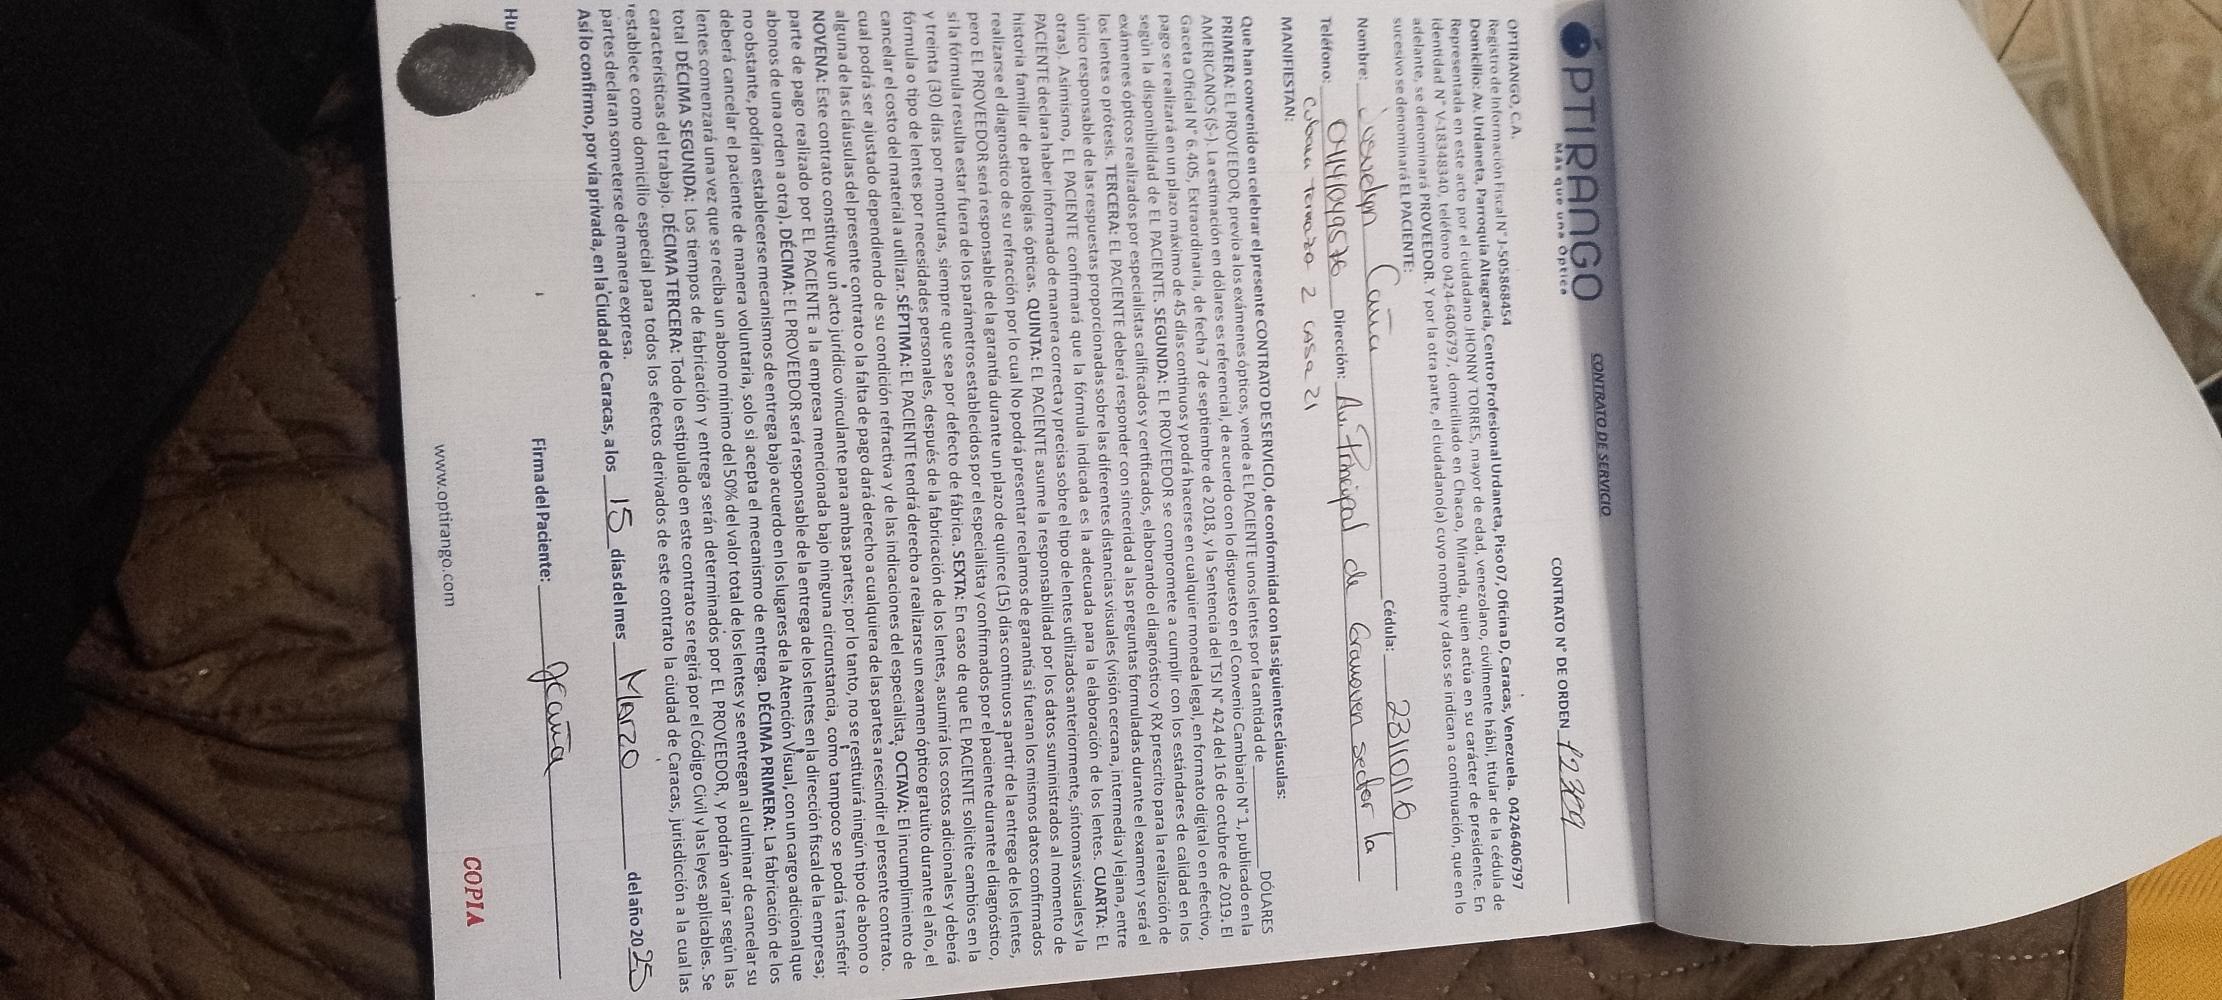 CONTRATO DE SERVICIO
OPTIRANGO
Más que una Óptica
CONTRATO N° DE ORDEN 12309
OPTIRANGO, C.A.
Registro de Información Fiscal N° J-505868454
Domicilio: Av. Urdaneta, Parroquia Altagracia, Centro Profesional Urdaneta, Piso 07, Oficina D, Caracas, Venezuela. 04246406797
Representada en este acto por el ciudadano JHONNY TORRES, mayor de edad, venezolano, civilmente hábil, titular de la cédula de
identidad N° V-18348340, teléfono 0424-6406797, domiciliado en Chacao, Miranda, quien actúa en su carácter de presidente. En
adelante, se denominará PROVEEDOR. Y por la otra parte, el ciudadano(a) cuyo nombre y datos se indican a continuación, que en lo
sucesivo se denominará EL PACIENTE:
Nombre: Caña Cédula: 23110116
Teléfono: 04141049576 Dirección: Av. Principal de Gramoven sector la
Cubana terraza 2 casa 21
MANIFIESTAN:
Que han convenido en celebrar el presente CONTRATO DE SERVICIO, de conformidad con las siguientes cláusulas:
PRIMERA: EL PROVEEDOR, previo a los exámenes ópticos, vende a EL PACIENTE unos lentes por la cantidad de DÓLARES
AMERICANOS ($-). La estimación en dólares es referencial, de acuerdo con lo dispuesto en el Convenio Cambiario N° 1, publicado en la
Gaceta Oficial N° 6.405, Extraordinaria, de fecha 7 de septiembre de 2018, y la Sentencia del TSJ N° 424 del 16 de octubre de 2019. El
pago se realizará en un plazo máximo de 45 días continuos y podrá hacerse en cualquier moneda legal, en formato digital o en efectivo,
según la disponibilidad de EL PACIENTE. SEGUNDA: EL PROVEEDOR se compromete a cumplir con los estándares de calidad en los
exámenes ópticos realizados por especialistas calificados y certificados, elaborando el diagnóstico y RX prescrito para la realización de
los lentes o prótesis. TERCERA: EL PACIENTE deberá responder con sinceridad a las preguntas formuladas durante el examen y será el
único responsable de las respuestas proporcionadas sobre las diferentes distancias visuales (visión cercana, intermedia y lejana, entre
otras). Asimismo, EL PACIENTE confirmará que la fórmula indicada es la adecuada para la elaboración de los lentes. CUARTA: EL
PACIENTE declara haber informado de manera correcta y precisa sobre el tipo de lentes utilizados anteriormente, síntomas visuales y la
historia familiar de patologías ópticas. QUINTA: EL PACIENTE asume la responsabilidad por los datos suministrados al momento de
realizarse el diagnostico de su refracción por lo cual No podrá presentar reclamos de garantía si fueran los mismos datos confirmados
pero EL PROVEEDOR será responsable de la garantía durante un plazo de quince (15) días continuos a partir de la entrega de los lentes,
si la fórmula resulta estar fuera de los parámetros establecidos por el especialista y confirmados por el paciente durante el diagnóstico,
y treinta (30) días por monturas, siempre que sea por defecto de fábrica. SEXTA: En caso de que EL PACIENTE solicite cambios en la
fórmula o tipo de lentes por necesidades personales, después de la fabricación de los lentes, asumirá los costos adicionales y deberá
cancelar el costo del material a utilizar. SÉPTIMA: EL PACIENTE tendrá derecho a realizarse un examen óptico gratuito durante el año, el
cual podrá ser ajustado dependiendo de su condición refractiva y de las indicaciones del especialista. OCTAVA: El incumplimiento de
alguna de las cláusulas del presente contrato o la falta de pago dará derecho a cualquiera de las partes a rescindir el presente contrato.
NOVENA: Este contrato constituye un acto jurídico vinculante para ambas partes; por lo tanto, no se restituirá ningún tipo de abono o
parte de pago realizado por EL PACIENTE a la empresa mencionada bajo ninguna circunstancia, como tampoco se podrá transferir
abonos de una orden a otra). DÉCIMA: EL PROVEEDOR será responsable de la entrega de los lentes en la dirección fiscal de la empresa;
no obstante, podrían establecerse mecanismos de entrega bajo acuerdo en los lugares de la Atención Visual, con un cargo adicional que
deberá cancelar el paciente de manera voluntaria, solo si acepta el mecanismo de entrega. DÉCIMA PRIMERA: La fabricación de los
lentes comenzará una vez que se reciba un abono mínimo del 50% del valor total de los lentes y se entregan al culminar de cancelar su
total DÉCIMA SEGUNDA: Los tiempos de fabricación y entrega serán determinados por EL PROVEEDOR, y podrán variar según las
características del trabajo. DÉCIMA TERCERA: Todo lo estipulado en este contrato se regirá por el Código Civil y las leyes aplicables. Se
restablece como domicilio especial para todos los efectos derivados de este contrato la ciudad de Caracas, jurisdicción a la cual las
partes declaran someterse de manera expresa.
Así lo confirmo, por vía privada, en la Ciudad de Caracas, a los 15 días del mes Marzo del año 2025
Hu Firma del Paciente: Jcaña
COPIA
www.optirango.com